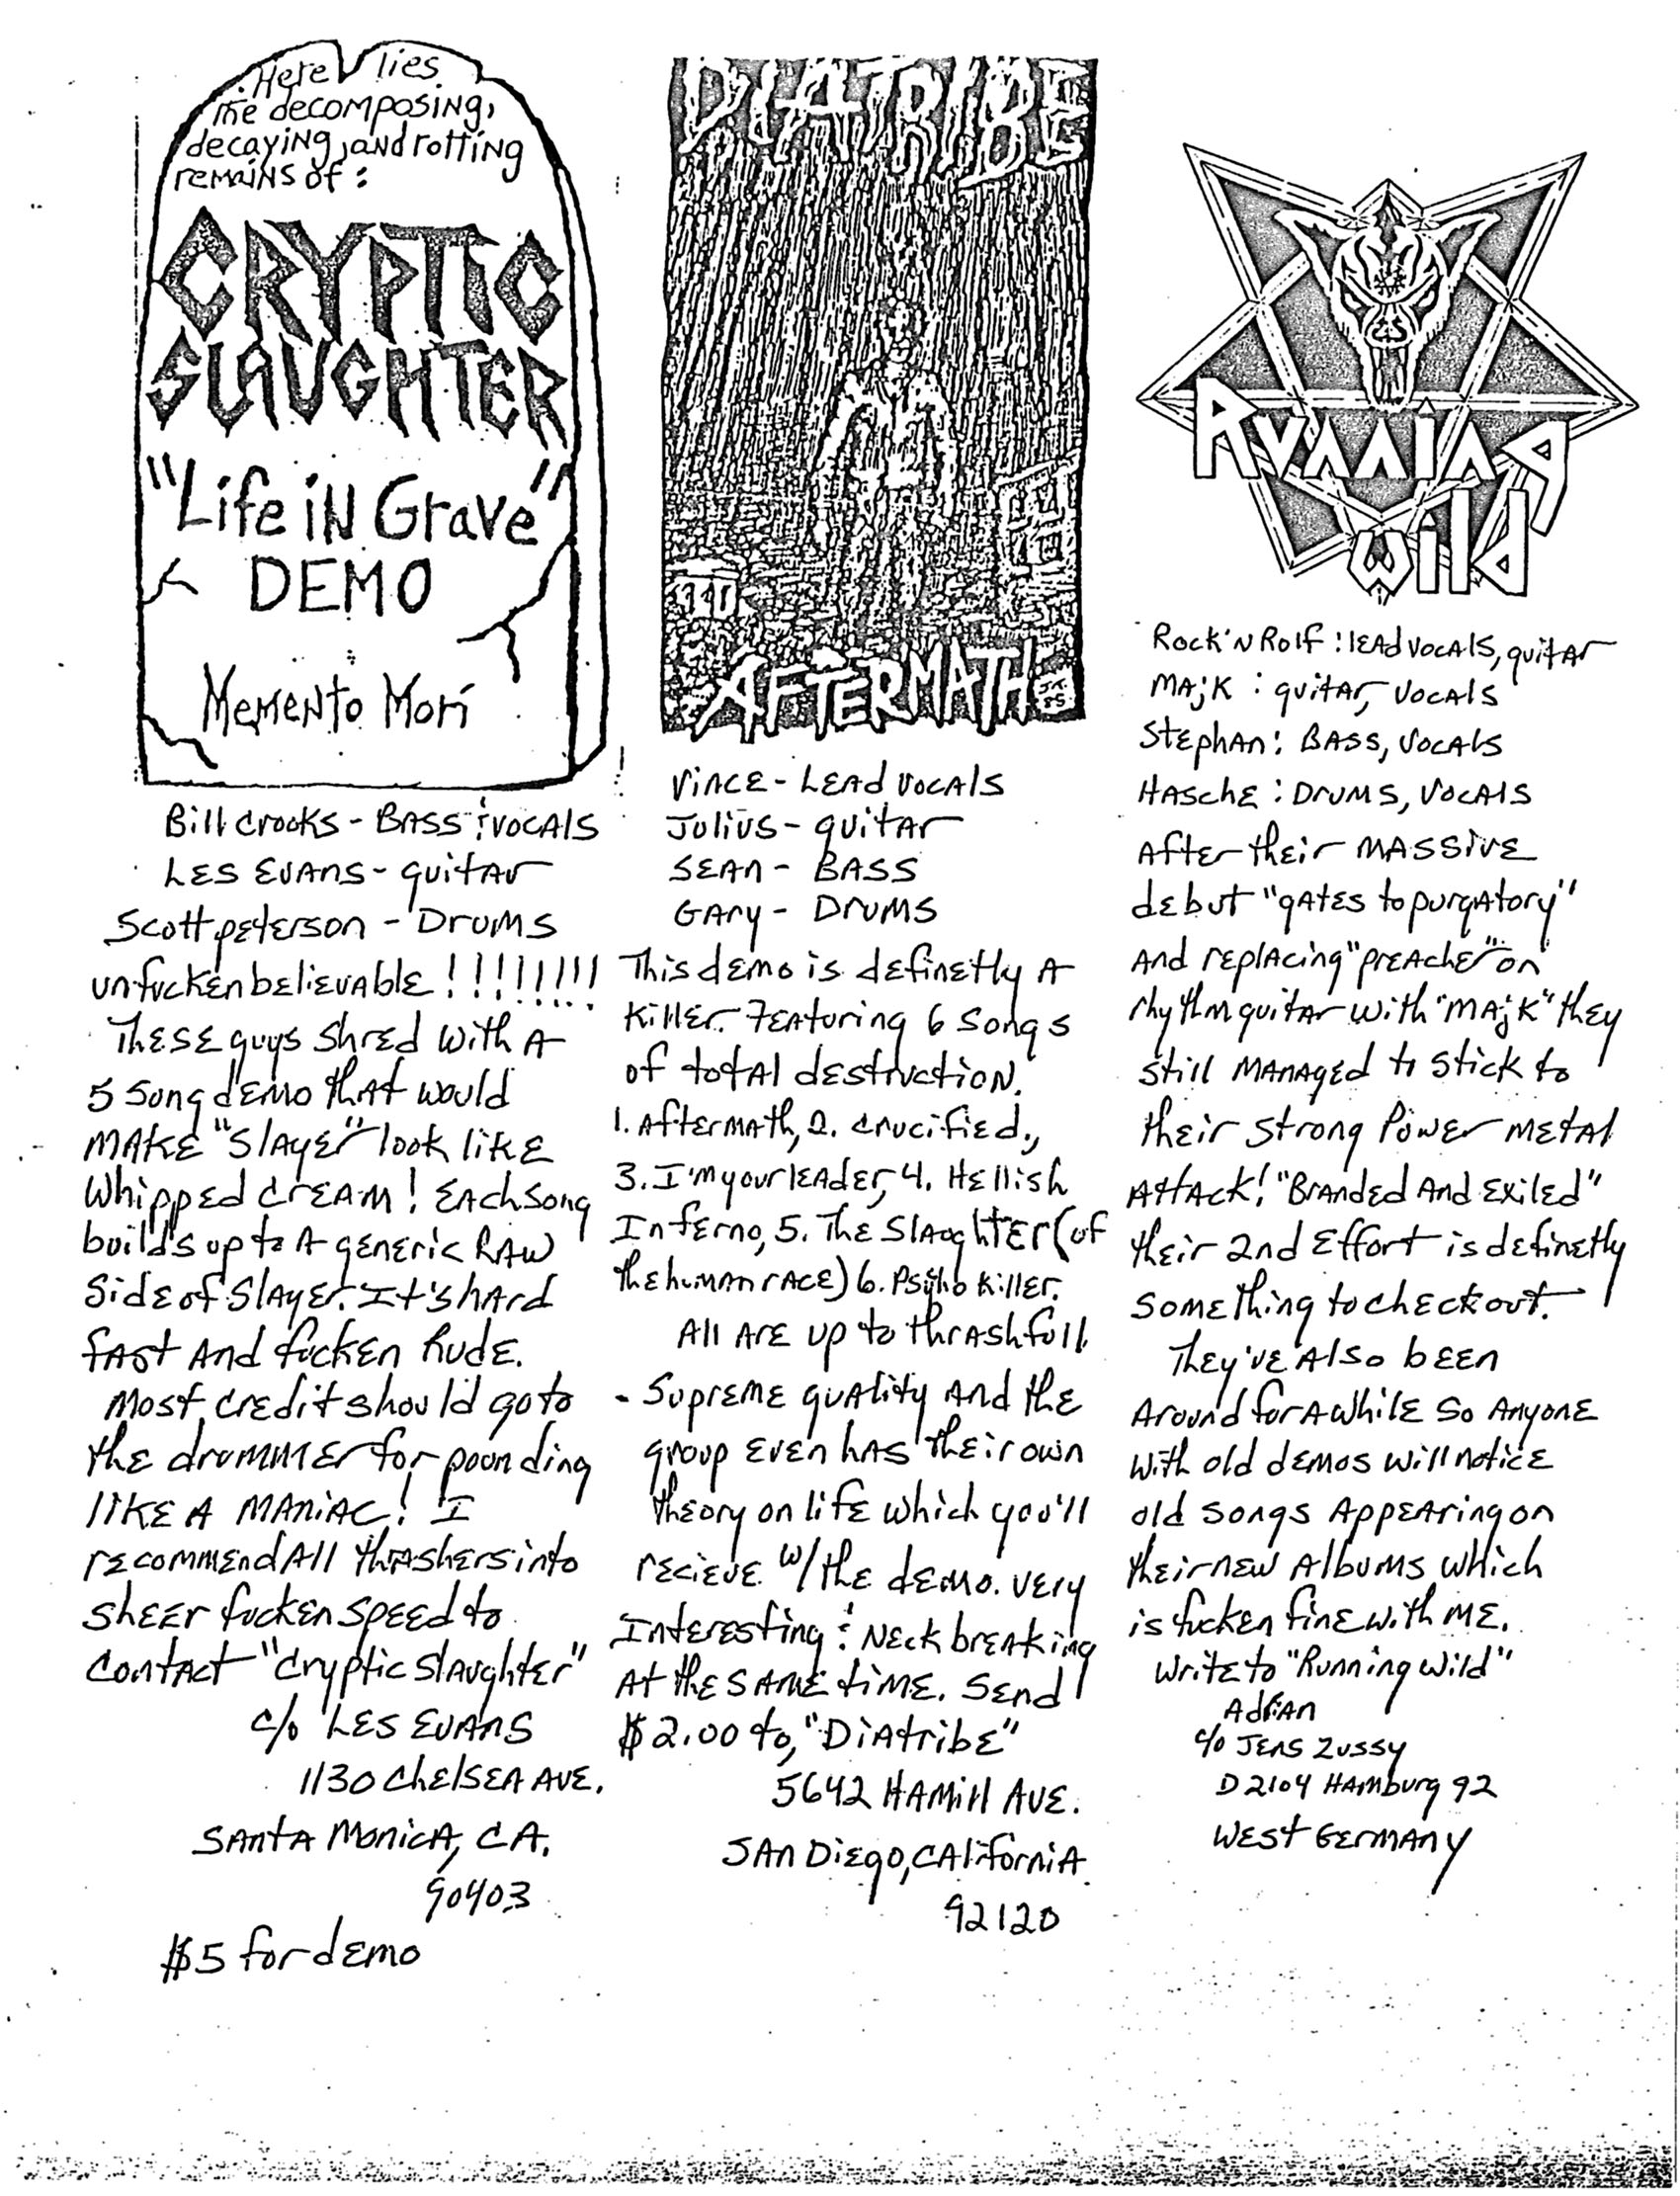 Here lies
the decomposing,
decaying, and rotting
remains of:
CRYPTIC
SLAUGHTER
"Life in Grave"
DEMO
Memento Mori
Bill Crooks - Bass & vocals
Les Evans - guitar
Scott Peterson - Drums
unfuckenbelievable!!!!!!!!
These guys shred with a
5 song demo that would
make "Slayer" look like
whipped cream! Each song
builds up to a generic raw
side of Slayer. It's hard
fast and fucken rude.
Most credit should go to
the drummer for pounding
like a maniac! I
recommend all thrashers into
sheer fucken speed to
contact "Cryptic Slaughter"
c/o Les Evans
1130 Chelsea Ave.
Santa Monica, CA.
90403
$5 for demo
DIATRIBE
AFTERMATH
Vince - Lead vocals
Julius - guitar
Sean - Bass
Gary - Drums
This demo is definetly a
killer. Featuring 6 songs
of total destruction.
1. Aftermath, 2. Crucified,
3. I'm your leader, 4. Hellish
Inferno, 5. The Slaughter (of
the human race) 6. Psycho Killer.
All are up to thrash full
- Supreme quality and the
group even has their own
theory on life which you'll
recieve w/ the demo. Very
Interesting & Neck breaking
at the same time. Send
$2.00 to, "Diatribe"
5642 Hamill Ave.
San Diego, California
92120
Running
Wild
Rock'n Rolf: lead vocals, guitar
Majk: guitar, vocals
Stephan: Bass, vocals
Hasche: Drums, vocals
After their massive
debut "gates to purgatory"
and replacing "preacher" on
rhythm guitar with "Majk" they
still managed to stick to
their strong power metal
attack! "Branded and Exiled"
their 2nd effort is definetly
something to check out.
They've also been
around for awhile so anyone
with old demos will notice
old songs appearing on
their new albums which
is fucken fine with me.
Write to "Running Wild"
Adrian
c/o Jens Zussy
D 2104 Hamburg 92
West Germany